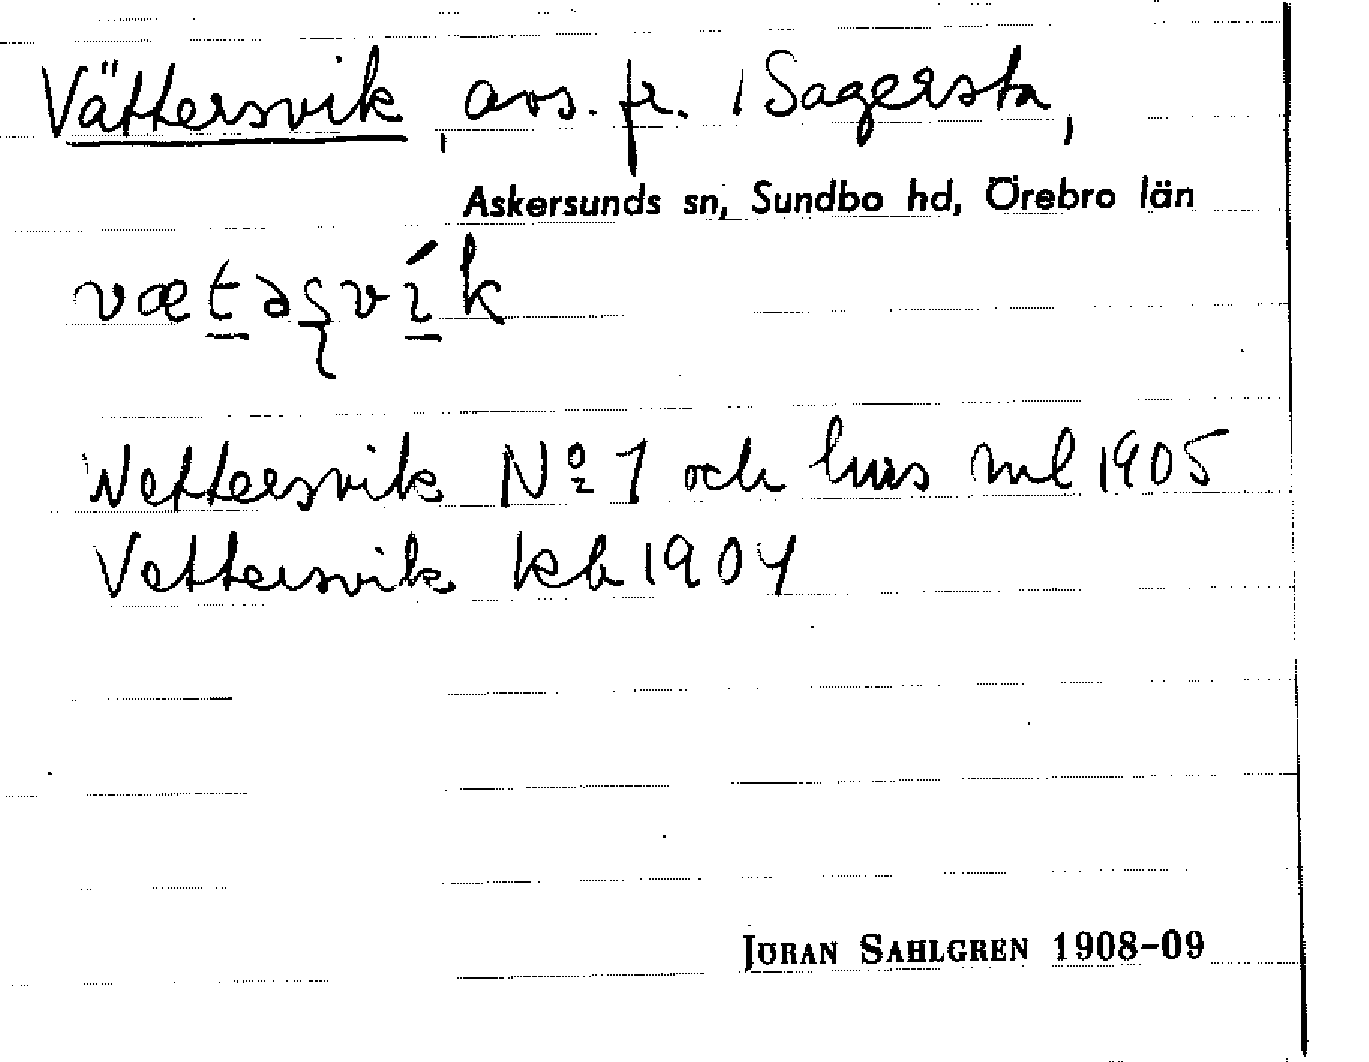 Vättersvik, avs. fr. 1 Sagersta,
Askersunds sn, Sundbo hd, Örebro län
vætəʂvík
Wettersvik Nº 1 och hus ml 1905
Vettersvik kb 1904
JÖRAN SAHLGREN 1908-09